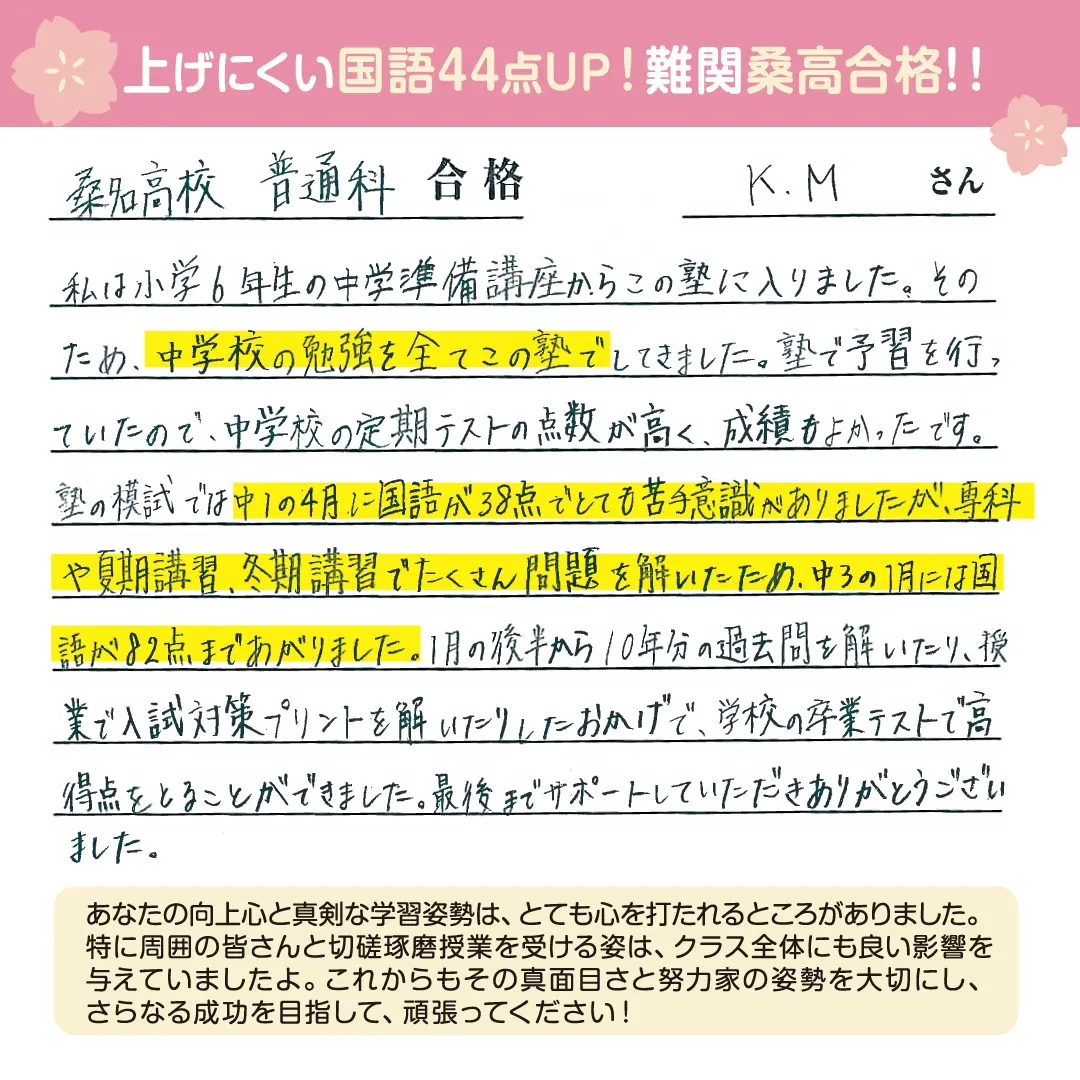 上げにくい国語44点UP！難関桑高合格！！
桑名高校 普通科 合格 K.M さん
私は小学6年生の中学準備講座からこの塾に入りました。その
ため、中学校の勉強を全てこの塾でしてきました。塾で予習を行っ
ていたので、中学校の定期テストの点数が高く、成績もよかったです。
塾の模試では中1の4月に国語が38点でとても苦手意識がありましたが、専科
や夏期講習、冬期講習でたくさん問題を解いたため、中3の1月には国
語が82点まであがりました。1月の後半から10年分の過去問を解いたり、授
業で入試対策プリントを解いたりしたおかげで、学校の卒業テストで高
得点をとることができました。最後までサポートしていただきありがとうござい
ました。
あなたの向上心と真剣な学習姿勢は、とても心を打たれるところがありました。
特に周囲の皆さんと切磋琢磨授業を受ける姿は、クラス全体にも良い影響を
与えていましたよ。これからもその真面目さと努力家の姿勢を大切にし、
さらなる成功を目指して、頑張ってください！